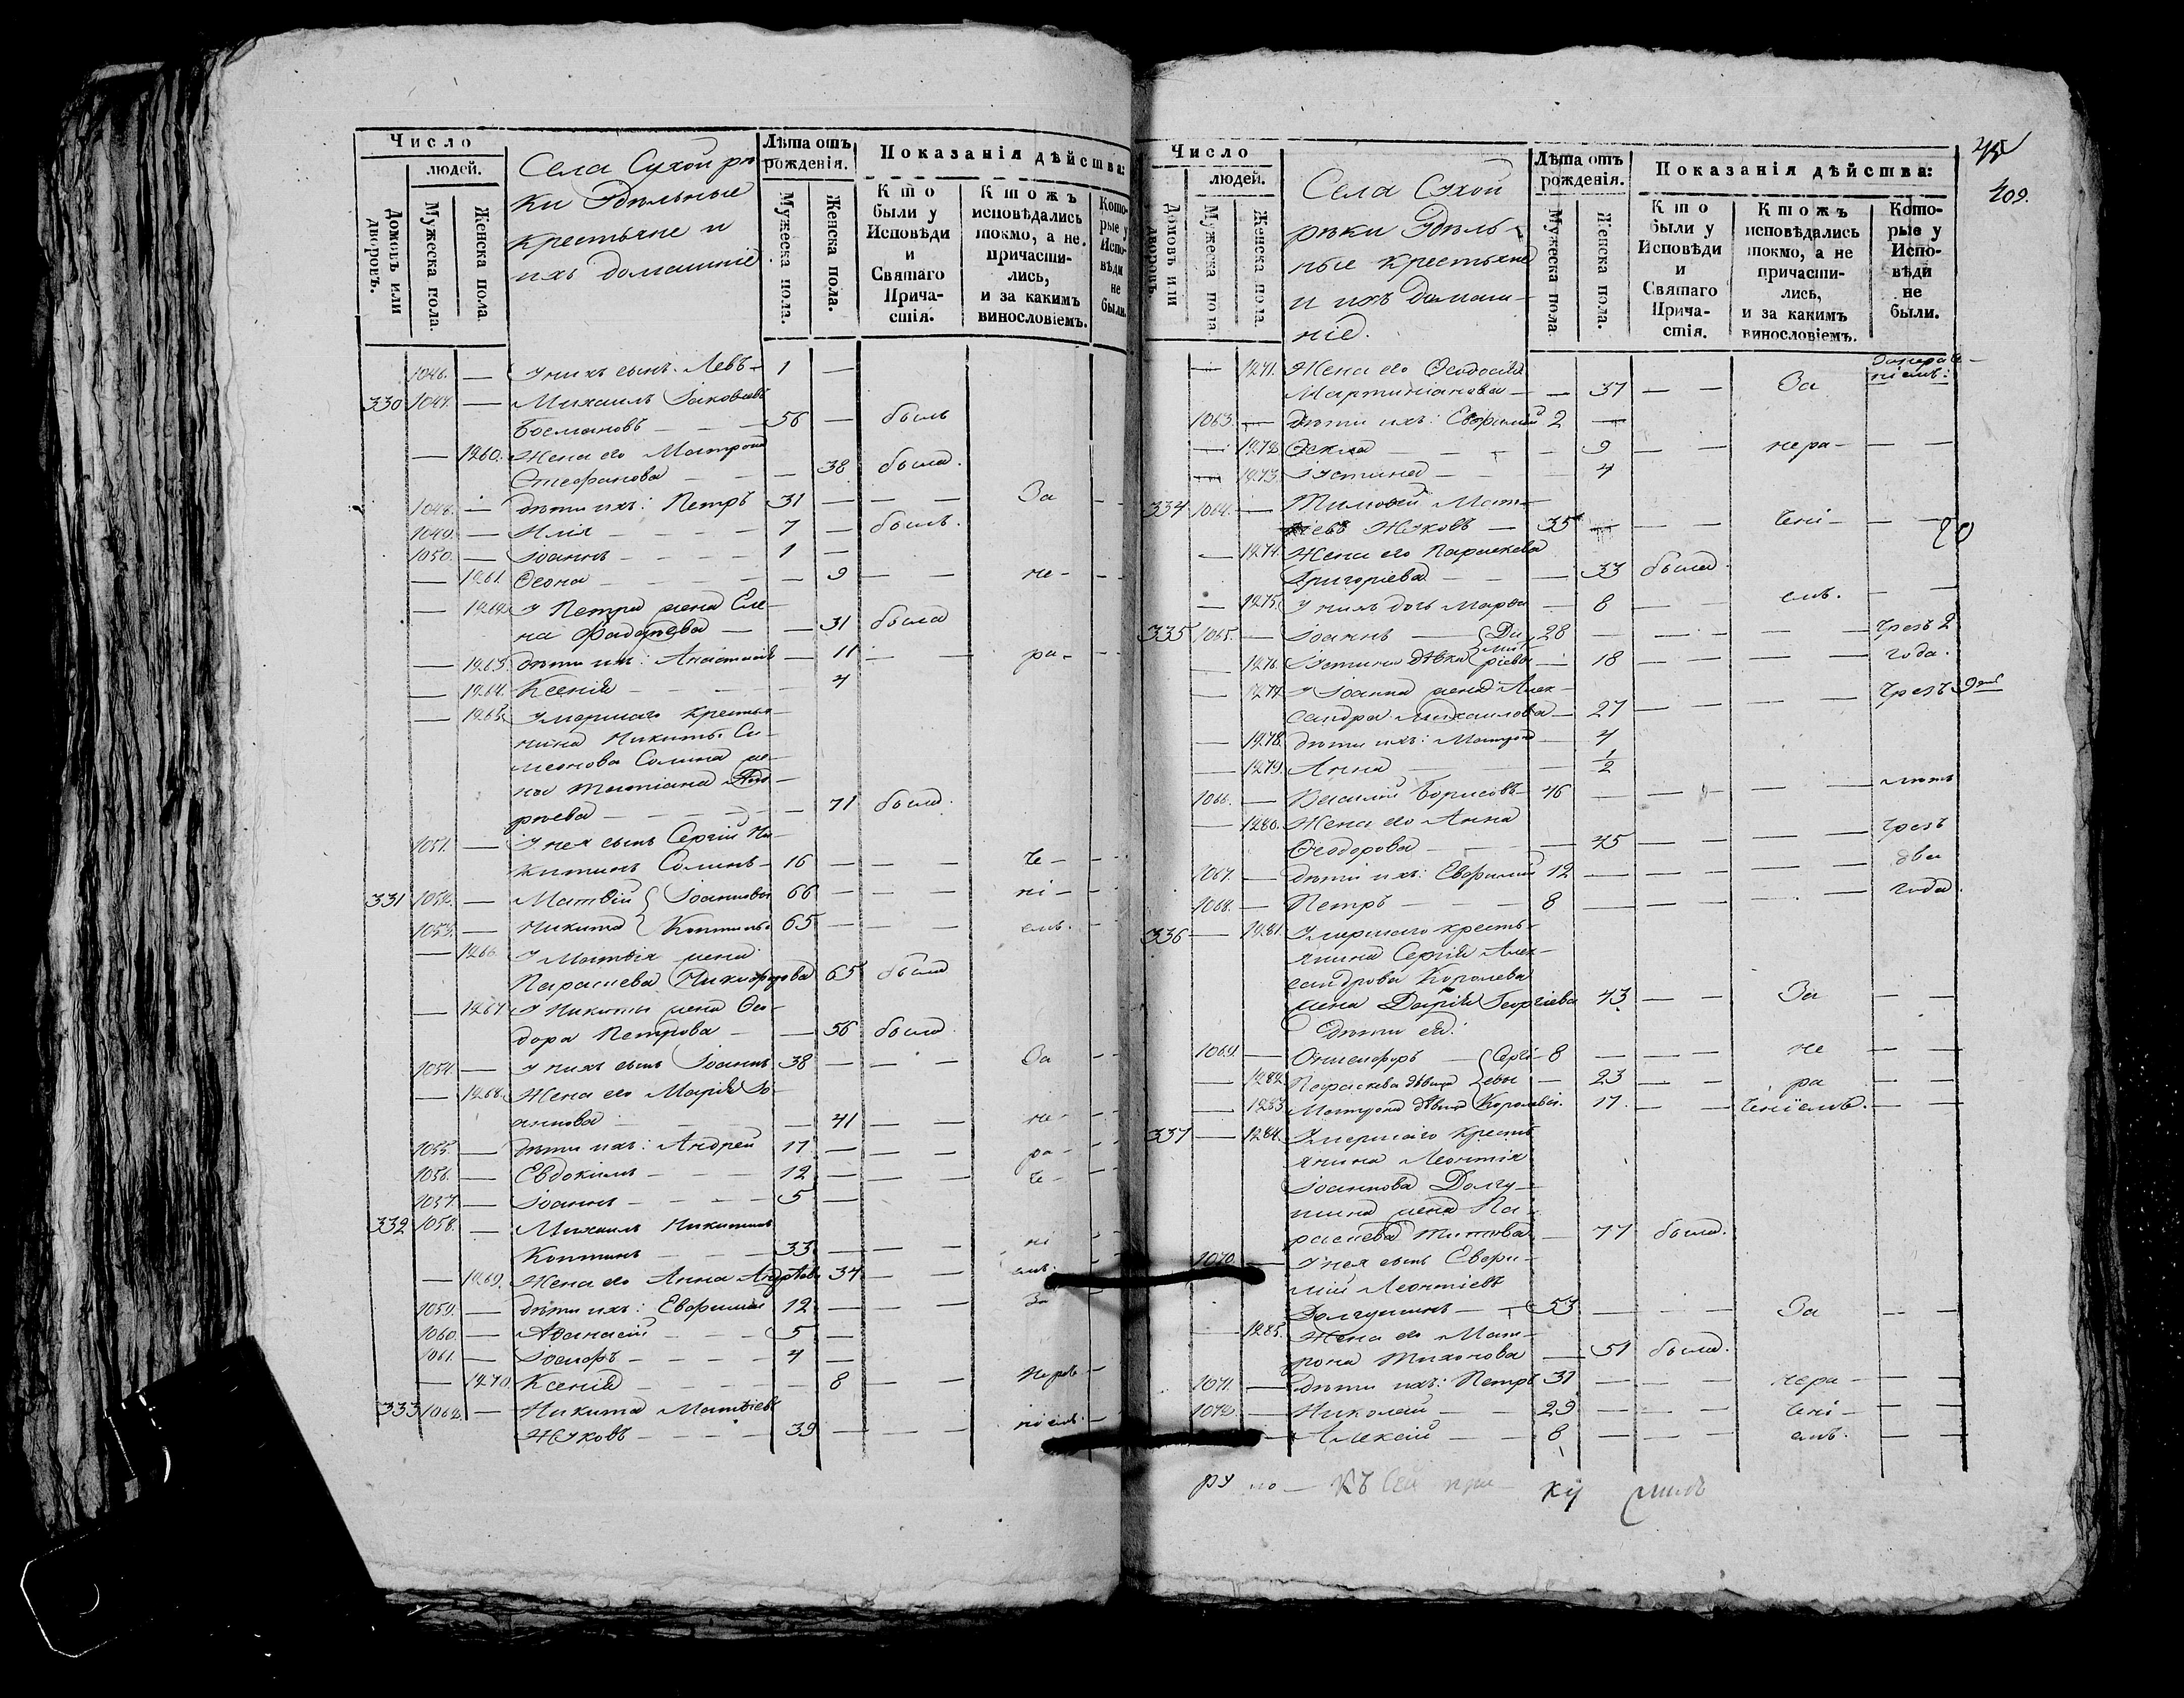 Число
людей.
Домовъ или дворовъ.
Мужеска пола.
Женска пола.
Села Сухой рѣ-
ки Удѣльные
крестьяне и
ихъ домашніе
Лѣта отъ рожденія.
Мужеска пола.
Женска пола.
Показанія дѣйства:
Кто были у Исповѣди и Святаго Прича-стія.
Ктожъ исповѣдались токмо, а не причасти-лись, и за какимъ винословіемъ.
Кото-рые у Испо-вѣди не были.
1046. — У нихъ сынъ Левъ — 1 —
330 1047. — Михаилъ Іаковлевъ
Босмановъ — — — 56 — былъ
— 1260. Жена его Матрона
Стефанова — — — 38 была.
1048. — дѣти ихъ: Петръ 31 — — — За —
1049. — Илія — — — 7 — былъ.
1050. — Іоаннъ — — — 1 —
— 1261. — — — 9 — — не — —
— 1262. У Петра жена Еле-
на — — 31 была
— 1263. дѣти ихъ: Анастасія — 11 — — ра — —
— 1264. Ксенія — — — 4
— 1265. Умершаго крестья-
нина Никиты Си-
меонова Солина же-
на Татіана Анд-
реева — — — 71 была.
1051. — У нея сынъ Сергій Ни-
китинъ Солинъ — 16 — — — че — —
331 1052. — Матвій Іоанновы 66 — — — ні — —
1053. — Никита 65 — — — емъ.
— 1266. У Матвія жена
Параскева Никифорова 65 была
— 1267. У Никиты жена Ѳео-
дора Петрова — — 56 была.
1054. — У нихъ сынъ Іоаннъ 38 — — — За — —
— 1268. Жена его Марія Іо-
аннова — — — 41 — — не — —
1055. — дѣти ихъ: Андрей 17 — — — ра —
1056. — Евдокимъ — — 12 — — — че — —
1057. — Іоаннъ — — — 5 —
332 1058. — Михаилъ Никитинъ
— — — 33 — — — ні
— 1269. Жена его Анна 34 — — емъ.
1059. — дѣти ихъ: Евфимій 12 — — — За
1060. — Аѳанасій — — — 5 —
1061. — Іосифъ — — — — 4 —
— 1270. Ксенія — — — 8 — — нера —
333 1062. — Никита Матвіевъ
Жуковъ — — — — 39 — — — ніемъ. —
Число
людей.
Домовъ или дворовъ.
Мужеска пола
Женска пола.
Села Сухой
рѣки Удѣль-
ные крестьяне
и ихъ домаш-
ніе.
Лѣта отъ рожденія.
Мужеска пола
Женска пола.
Показанія дѣйства:
Кто были у Исповѣди и Святаго Прича-стія.
Ктожъ исповѣдались токмо, а не причасти-лись, и за какимъ винословіемъ.
Кото-рые у Испо-вѣди не были.
409.
— 1271. Жена его Ѳеодосія
Мартиніанова — — 37 — — За
1063. — дѣти ихъ: Евфимій 2 —
— 1272. Ѳекла — — — — 9 — — нера — — —
— 1273. Іустина — — — 4
334 1064. — Тимоѳей Мат-
віевъ Жуковъ — 35 — — — чені — —
— 1274. Жена его Параскева
Григоріева — — — 33 была.
— 1275. У нихъ дочь Марѳа — 8 — — емъ. — —
335 1065. — Іоаннъ — Ди- 28 — — — — чрезъ 2
— 1276. Іустина дѣвка мит-ріевы — 18 — — — — года.
— 1277. У Іоанна жена Алек-
сандра Михаилова — 27 — — — — чрезъ 9
— 1278. дѣти ихъ: Матрона — 4
— 1279. Анна — 1/2
1066. — Василій Борисовъ 46 — — — — — лѣтъ
— 1280. Жена его Анна
Ѳеодорова — — — 45 — — — — чрезъ
1067. — дѣти ихъ: Евфимій 12 — — — — — два
1068. — Петръ — — — 8 — — — — — года.
336 — 1281. Умершаго кресть-
янина Сергія Алек-
сандрова Королева
жена Дарія Георгіева 43 — — За — —
дѣти ея:
1069. — Онисифоръ — Сергі- 8 — — — не — —
— 1282. Параскева дѣвица евы — 23 — — ра — —
— 1283. Матрона дѣвица Королевы. 17. — — ченіемъ. — —
337 — 1284. Умершаго кресть-
янина Леонтія
Іоаннова Долгу-
шина жена Па-
раскева Титова — 77 была.
1070. — У нея сынъ Евфи-
мій Леонтіевъ
Долгушинъ — — 53 — — — За — —
— 1285. Жена его Мат-
рона Тихонова — 51 была.
1071. — дѣти ихъ: Петръ 31 — — — нера — — —
1072. — Николай — — 29 — — — чені — — —
— Алексій — — 8 — — — емъ. — —
ру но — къ сей при — ку